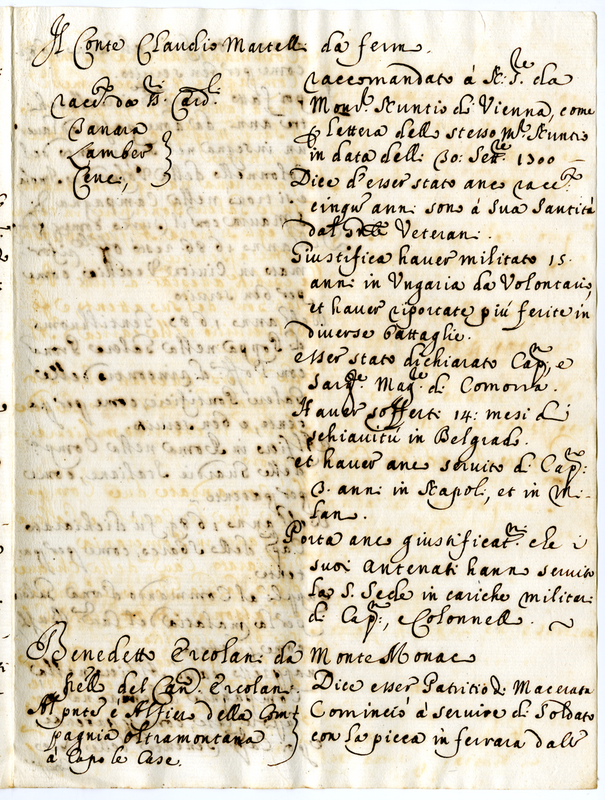 Il Conte Claudio Martelli da fermo.
racc.to da SS.ri Card.li
Panara
Lamber
Ceva,
raccomandato à N. S.re da
Mons.r Nuntio di Vienna, come
p lettera dello stesso m.r Nuntio
in data delli 30: Sett.re 1700
Dice d'esser stato anc racc.to
cinqu anni sono à Sua Santità
dal Veterani.
Giustifica haver militato 15.
anni in Ungaria da Volontario,
et haver riportate più ferite in
diverse battaglie.
esser stato dichiarato Cap.no, e
Sarg.te Mag.re di Comorra.
Haver sofferti 14: mesi di
schiavitù in Belgrado.
et haver anc servito di Cap.no:
3. anni in Napoli, et in Mi-
lano.
Porta anc giustificat.ni che i
suoi Antenati hanno servito
la S. Sede in cariche militari
di Cap.ni, e Colonnelli.
Benedetto Ercolani da Monte Monaco
frello del Can.co Ercolani.
Al pnte è Alfiere della Com-
pagnia oltramontana
à Capo le Case.
Dice esser Patritio di Macerata
Cominciò à servire di Soldato
con la picca in ferrara dall'